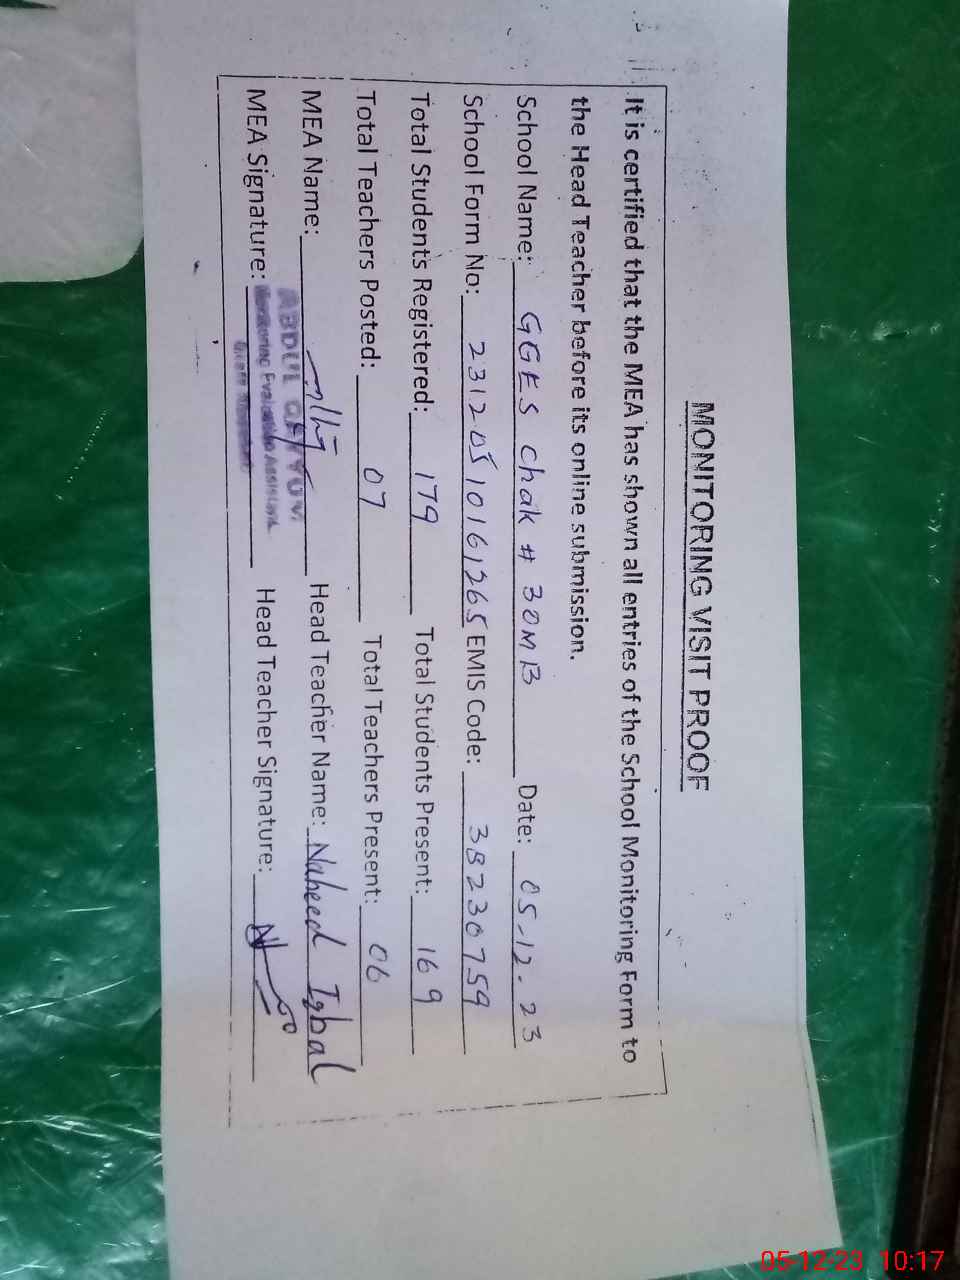 MONITORING VISIT PROOF
It is certified that the MEA has shown all entries of the School Monitoring Form to
the Head Teacher before its online submission.
School Name: GGES Chak # 30MB Date: 05-12-23
School Form No: 23120510161265 EMIS Code: 38230759
Total Students Registered: 179 Total Students Present: 169
Total Teachers Posted: 07 Total Teachers Present: 06
MEA Name: Head Teacher Name: Naheed Iqbal
ABDUL QAYYUM
MEA Signature: Monitoring Evaluation Assistant Head Teacher Signature:
05-12-23 10:17